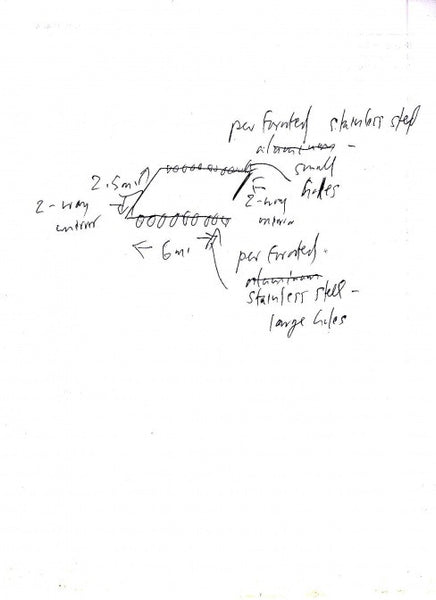 perforated stainless steel
aluminum -
small
holes
2.5 m
2-way
mirror
2-way
mirror
6 m
perforated -
aluminum
stainless steel -
large holes